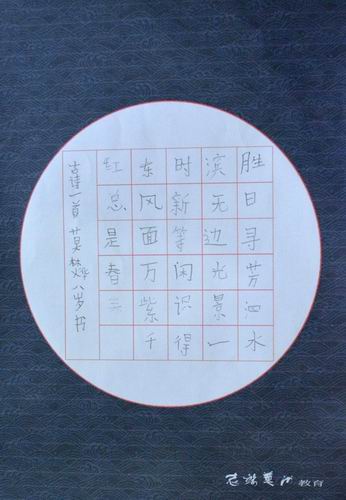 胜日寻芳泗水
滨无边光景一
时新等闲识得
东风面万紫千
红总是春
古诗一首 莫 八岁书
教育